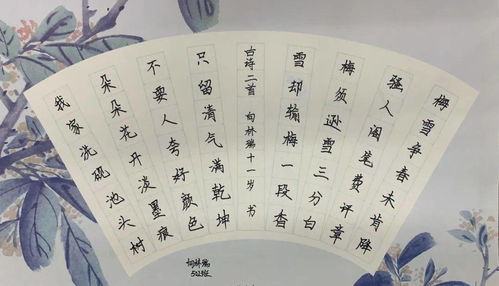 梅雪争春未肯降
骚人阁笔费评章
梅须逊雪三分白
雪却输梅一段香
古诗二首 向林瑞十一岁 书
只留清气满乾坤
不要人夸好颜色
朵朵花开淡墨痕
我家洗砚池头树
向林瑞